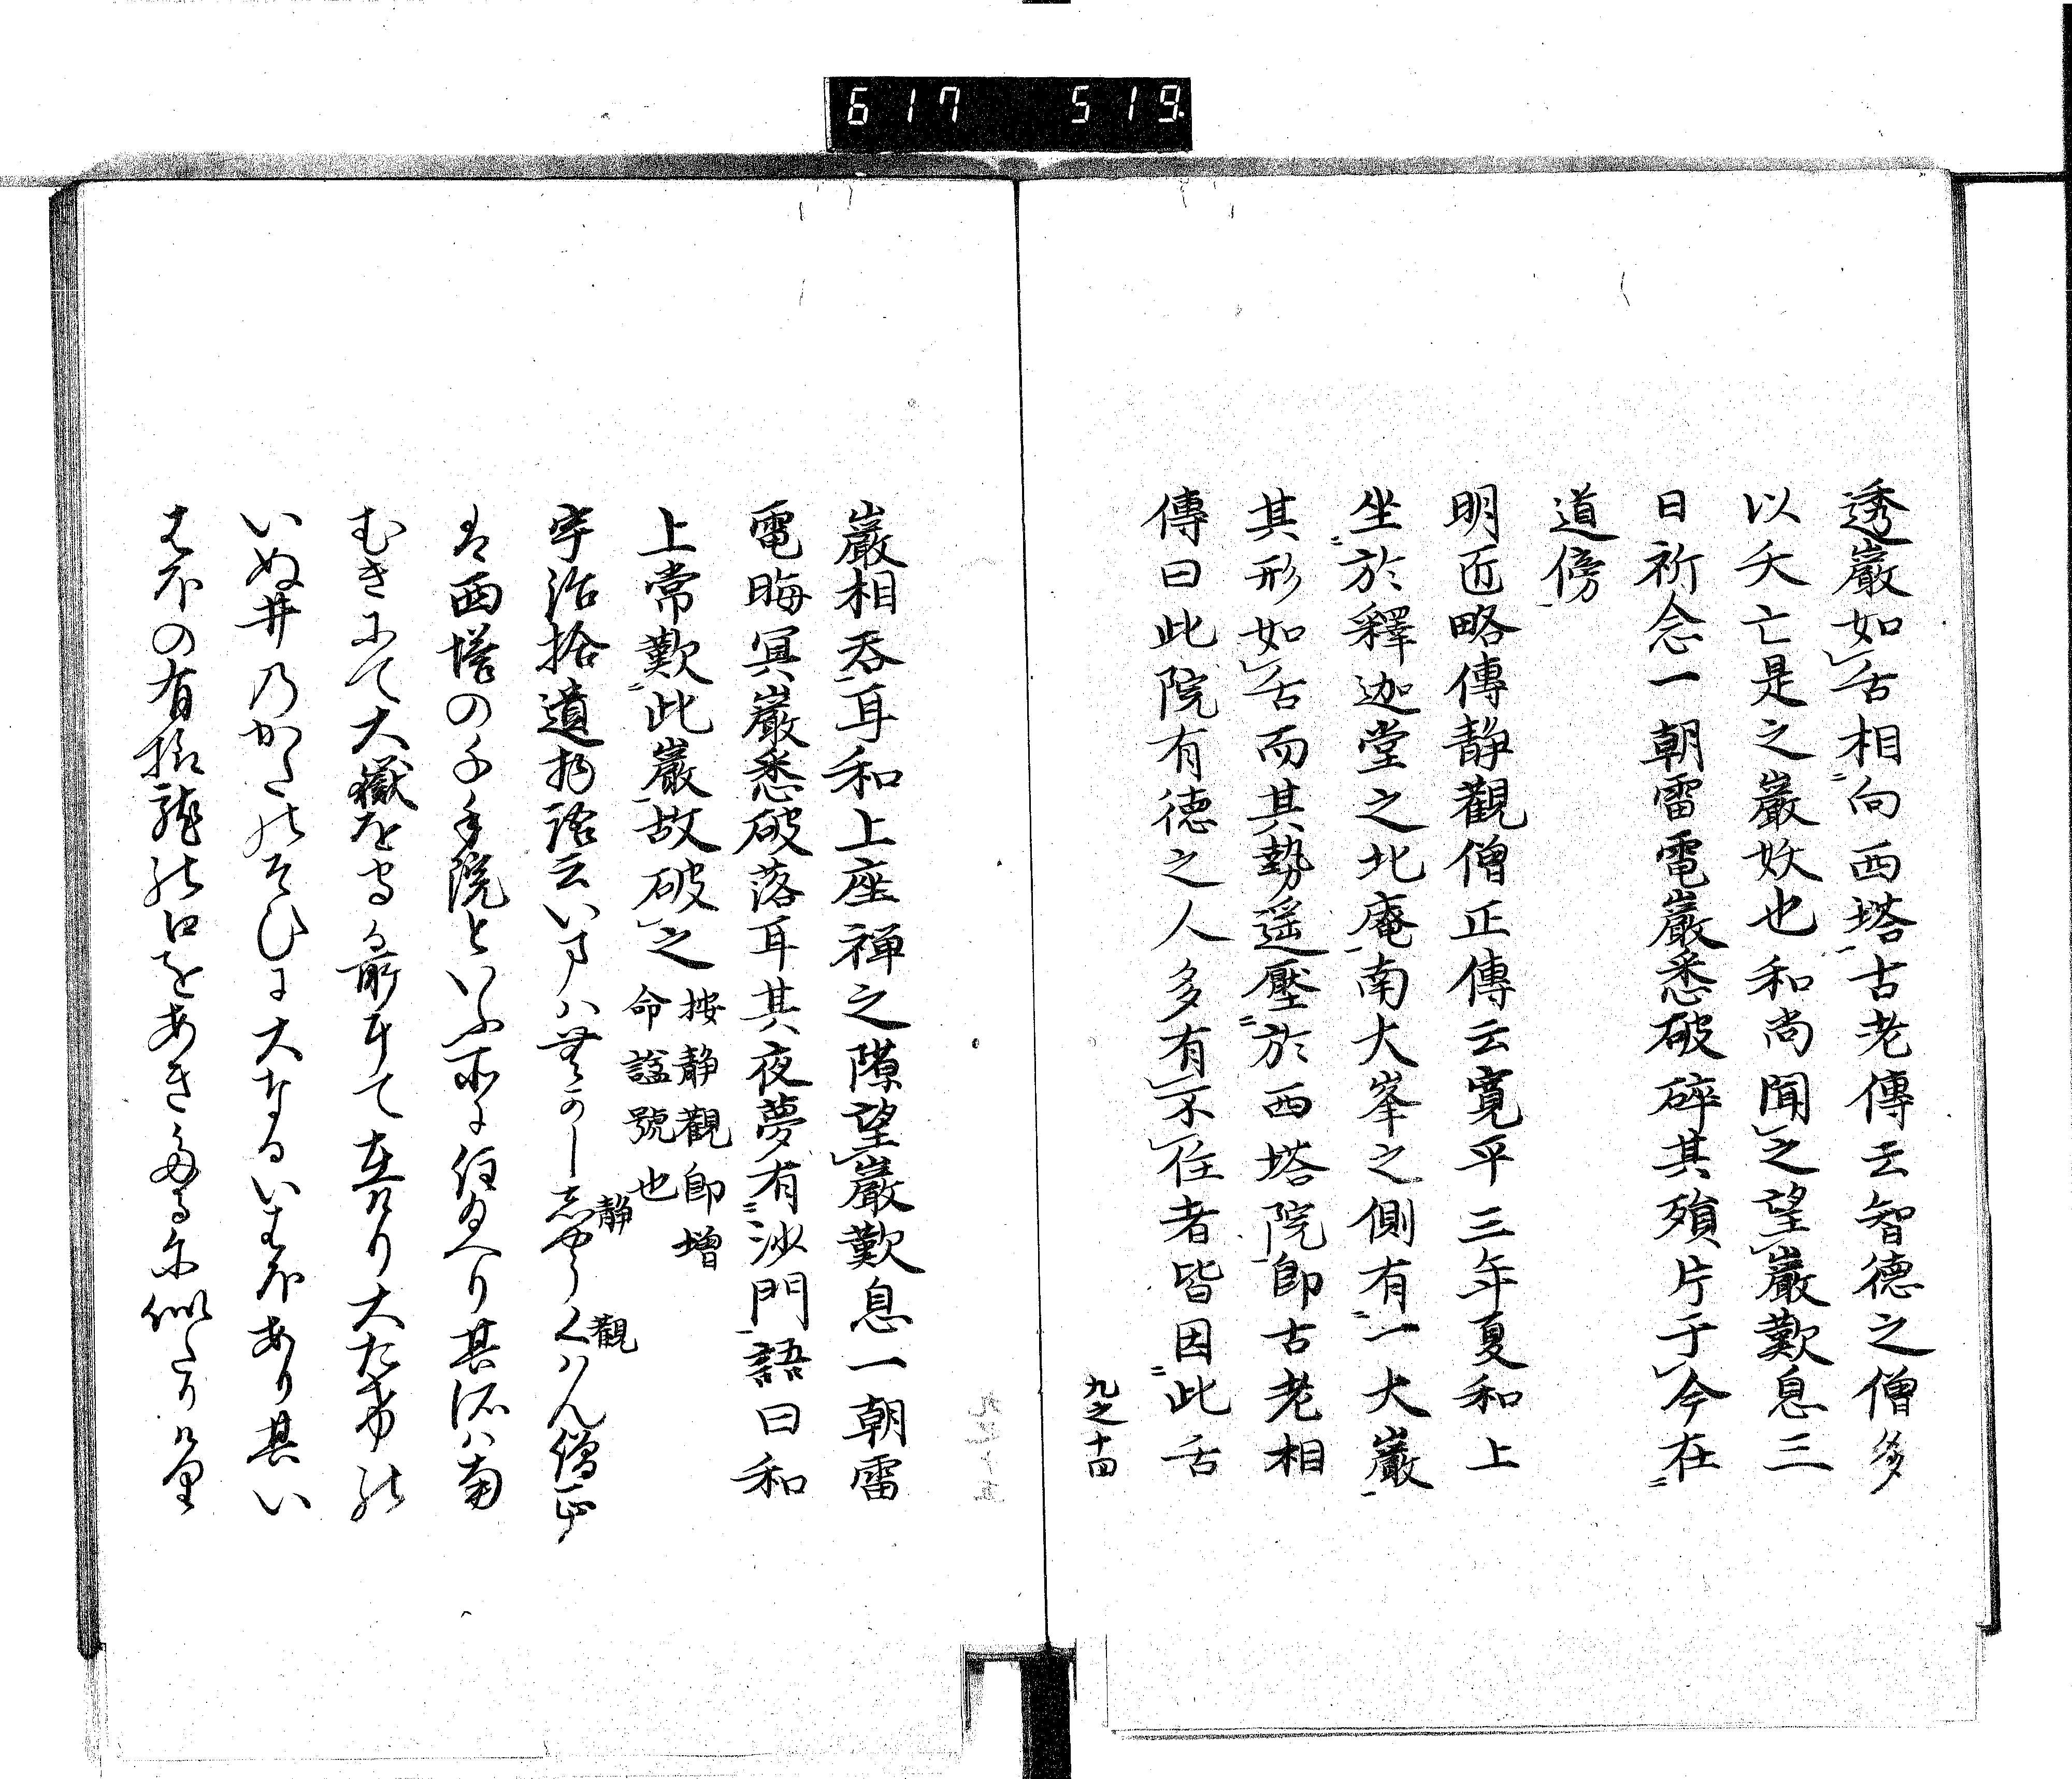 617 519
透巖如舌相向西塔古老傳云智德之僧多
以夭亡是之巖妖也和尚聞之望巖歎息三
日祈念一朝雷電巖悉破碎其殞片于今在
道傍
明匠略傳静觀僧正傳云寛平三年夏和上
坐於釋迦堂之北庵南大峯之側有一大巖
其形如舌而其勢遥壓於西塔院即古老相
傳曰此院有徳之人多有不住者皆因此舌
九之十四
巖相吞耳和上座禅之隙望巖歎息一朝雷
電晦冥巖悉破落耳其夜夢有沙門語曰和
上常歎此巖故破之
按静觀即増
命謚號也
宇治拾遺物語云いまハむかし志やうくハん僧正
静觀
は西塔の千手院といふ所に住給へり其所ハ南
むきにて大嶽をまもる所にて在けり大たけの
いぬ井のかたのそひに大なるいはほあり其い
はほの有様龍の口をあきたるに似たりけり